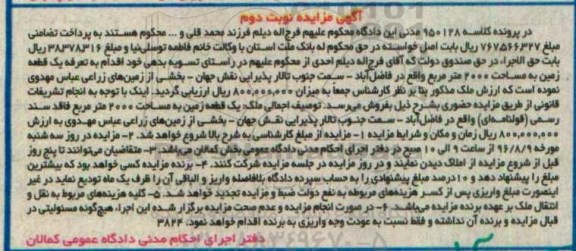 آگهی مزایده نوبت دوم
در پرونده کلاسه ۹۵۰۱۲۸ مدنی این دادگاه محکوم علیهم فرج‌اله دیلم فرزند محمد قلی و ... محکوم هستند به پرداخت تضامنی
مبلغ ۷۶۷۵۶۶۳۲۷ ریال بابت اصل خواسته در حق محکوم له بانک ملت استان با وکالت خانم فاطمه توسلی‌نیا و مبلغ ۳۸۳۷۸۳۱۶ ریال
بابت حق الاجراء در حق صندوق دولت که آقای فرج‌اله دیلم احدی از محکوم علیهم در راستای تسویه بدهی خود اقدام به تعرفه یک قطعه
زمین به مساحت ۲۰۰۰ متر مربع واقع در فاضل‌آباد - سمت جنوب تالار پذیرایی نقش جهان - بخشی از زمین‌های زراعی عباس مهدوی
نموده است که ارزش ملک مذکور بنا بر نظر کارشناس جمعاً به میزان ۸۰۰,۰۰۰,۰۰۰ ریال ارزیابی گردید. اینک با توجه به انجام تشریفات
قانونی از طریق مزایده حضوری بشرح ذیل بفروش می‌رسد. توصیف اجمالی ملک یک قطعه زمین به مساحت ۲۰۰۰ متر مربع فاقد سند
رسمی (قولنامه‌ای) واقع در فاضل‌آباد - سمت جنوب تالار پذیرایی نقش جهان - بخشی از زمین‌های زراعی عباس مهدوی به ارزش
۸۰۰,۰۰۰,۰۰۰ ریال زمان و مکان و شرایط مزایده ۱- مزایده از مبلغ کارشناسی به شرح بالا شروع خواهد شد. ۲- مزایده در روز سه شنبه
مورخه ۹۶/۸/۹ از ساعت ۹ الی ۱۰ صبح در دفتر اجرای احکام مدنی دادگاه عمومی بخش کمالان می‌باشد. ۳- متقاضیان می‌توانند تا پنج روز
قبل از شروع مزایده از املاک دیدن نمایند و در روز مزایده در جلسه مزایده شرکت کنند. ۴- برنده مزایده کسی خواهد بود که بیشترین
مبلغ را پیشنهاد دهد و ۱۰درصد مبلغ پیشنهادی را به حساب سپرده دادگاه بلافاصله واریز و الباقی آن را ظرف یک ماه تودیع نماید در غیر
اینصورت مبلغ واریزی پس از کسر هزینه‌های مربوطه به نفع دولت ضبط و مزایده تجدید خواهد شد. ۵- کلیه هزینه‌های مربوط به نقل و
انتقال ملک بر عهده برنده مزایده می‌باشد. ۶- در صورت انجام مزایده و عدم صحت مزایده برگزار شده این اجراء هیچگونه مسئولیتی در
قبال مزایده و برنده آن نداشته و فقط نسبت به عودت وجه واریزی به برنده اقدام خواهد نمود. ۳۸۲۴
دفتر اجرای احکام مدنی دادگاه عمومی کمالان